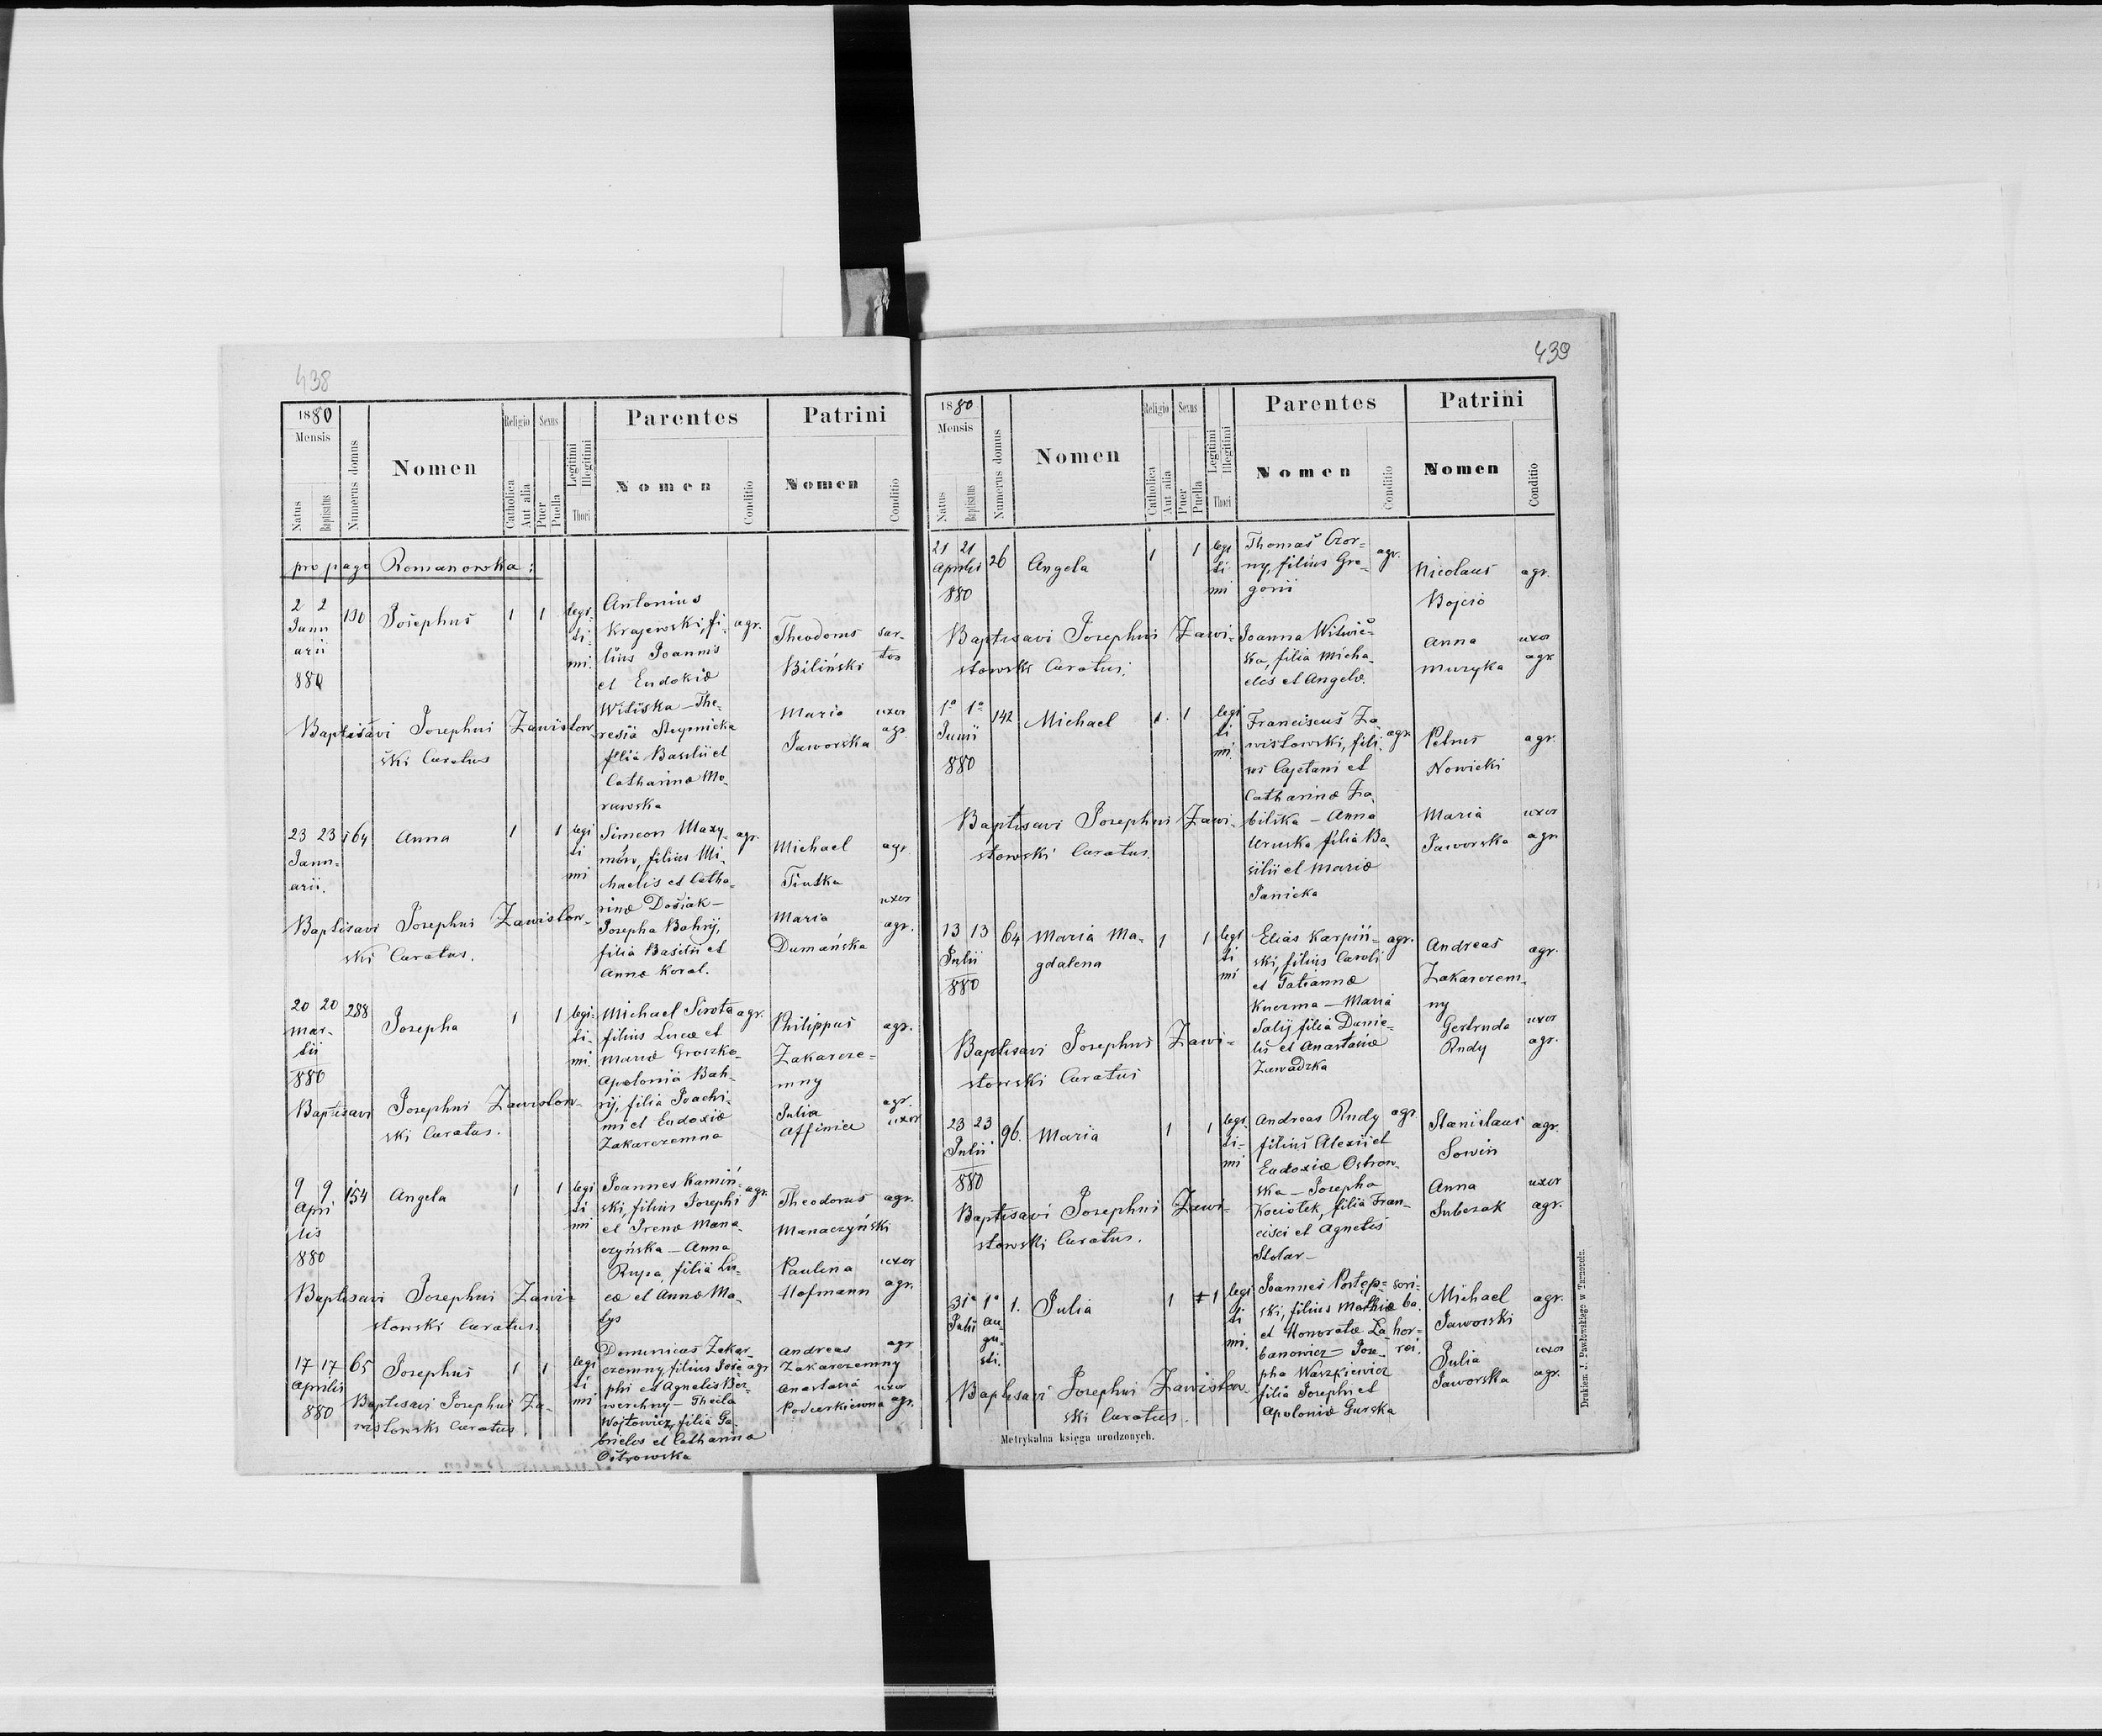 438
1880
Mensis
Natus
Baptisatus
Numerus domus
Nomen
Religio
Catholica
Aut alia
Sexus
Puer
Puella
Legitimi
Illegitimi
Thori
Parentes
Nomen
Conditio
Patrini
Nomen
Conditio
pro pago Romanowka:
2 2
Janu
arii
880
190
Josephus
1 1
legi
ti
mi.
Antonius
Krajewski, fi-
lius Joannis
et Eudokiæ
Witiska – The-
resia
filia Basilii et
Catharinæ Mo-
rawska
agr.
Theodorus
Biliński
sar-
tor
Maria
Jaworska
uxor
agr.
Baptisavi Josephus Zawisłow
ski Curatus
23 23
Janu-
arii.
164
Anna
1 1
legi
ti
mi
Simeon Maxy-
mów, filius Mi-
chaelis et Catha-
rinæ Dosiak –
Josepha Bahrij,
filia Basilii et
Annæ Koral.
agr.
Michael
Tiutka
agr.
Maria
Dumańska
uxor
agr.
Baptisavi Josephus Zawisłow-
ski Curatus.
20 20
Mar-
tii
880
288
Josepha
1 1
legi-
ti-
mi.
Michael Sirota
filius Lucæ et
Mariæ Groszko-
Apolonia Bah-
rij, filia Joachi-
mi et Eudoxiæ
Zakarczemna
agr.
Philippus
Zakarcze-
mny
agr.
Julia
Affinia
agr.
uxor
Baptisavi Josephus Zawisłow-
ski Curatus.
9 9
Apri
lis
880
154
Angela
1 1
legi
ti
mi
Joannes Kamiń-
ski, filius Josephi
et Irenæ Mana-
czyńska – Anna
Rupa, filia Lu-
cæ et Annæ Ma-
lys
agr.
Theodorus
Manaczyński
agr.
Paulina
Hofmann
uxor
agr.
Baptisavi Josephus Zawi-
słowski Curatus.
17 17
Aprilis
880
65
Josephus
1 1
legi
ti
mi
Dominicus Zakar
czemny, filius Jose
phi et Agnetis Ber-
werchny – Theila
Wojtowicz, filia Ga
brielis et Catharinæ
Ostrowska
agr
Andreas
Zakarczemny
agr
Anastasia
uxor
agr.
Baptisavi Josephus Za-
wisłowski Curatus.
439
1880
Mensis
Natus
Baptisatus
Numerus domus
Nomen
Religio
Catholica
Aut alia
Sexus
Puer
Puella
Legitimi
Illegitimi
Thori
Parentes
Nomen
Conditio
Patrini
Nomen
Conditio
21 21
Aprilis
880
26
Angela
1 1
legi
ti
mi
Thomas Czor-
ny, filius Gre-
gorii
Joanna Witwic-
ka, filia Micha-
elis et Angelæ.
agr.
Nicolaus
Bojcio
agr.
Anna
Muzyka
uxor
agr
Baptisavi Josephus Zawi-
słowski Curatus.
1º 1º
Junii
880
142
Michael
1. 1
legi
ti
mi.
Franciscus Za
wisłowski, fili-
us Cajetani et
Catharinæ Za
bilska – Anna
Uruska filia Ba-
silii et Mariæ
Janicka
agr.
Petrus
Nowicki
agr.
Maria
Jaworska
uxor
agr
Baptisavi Josephus Zawi-
słowski Curatus.
13 13
Julii
880
64
Maria Ma-
gdalena
1 1
legi
ti
mi
Elias Karpiń-
ski, filius Caroli
et Tatiannæ
Kuczma – Maria
Salij filia Danie-
lis et Anastasiæ
Zawadzka
agr.
Andreas
Zakarczem-
ny
agr.
Gertruda
Rudy
uxor
agr.
Baptisavi Josephus Zawi-
słowski Curatus
23 23
Julii
880
96.
Maria
1 1
legi
ti-
mi
Andreas Rudy
filius Alexii et
Eudoxiæ Ostrow-
ska – Josepha
Kociołek, filia Fran-
cisci et Agnetis
Stolar –
agr.
Stanislaus
Sowin
agr.
Anna
Subczak
uxor
agr.
Baptisavi Josephus Zawi-
słowski Curatus.
31ª 1ª
Julii Au-
gu-
sti.
1.
Julia
1 1
legi
ti
mi.
Joannes Postęp-
ski, filius Mathiæ
et Honoratæ Za
banowicz – Jose-
pha Waszkiewicz
filia Josephi et
Apoloniæ Gurska
Michael
Jaworski
agr.
Julia
Jaworska
uxor
agr.
Baptisavi Josephus Zawisłow
ski Curatus.
Metrykalna księga urodzonych.
Drukiem J. Pawłowskiego w Tarnopolu.